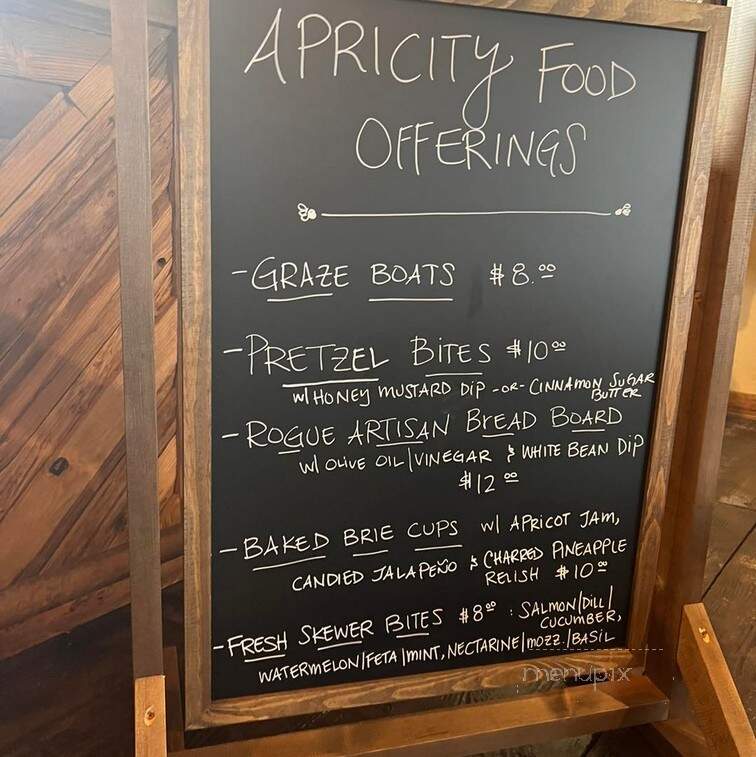 APRICITY FOOD
OFFERINGS
- GRAZE BOATS $8.00
- PRETZEL BITES $10.00
W/ HONEY MUSTARD DIP -OR- CINNAMON SUGAR
BUTTER
- ROGUE ARTISAN BREAD BOARD
W/ OLIVE OIL/VINEGAR & WHITE BEAN DIP
$12.00
- BAKED BRIE CUPS W/ APRICOT JAM,
CANDIED JALAPEÑO & CHARRED PINEAPPLE
RELISH $10.00
- FRESH SKEWER BITES $8.00 : SALMON/DILL/
CUCUMBER,
WATERMELON/FETA/MINT, NECTARINE/MOZZ./BASIL
menupix